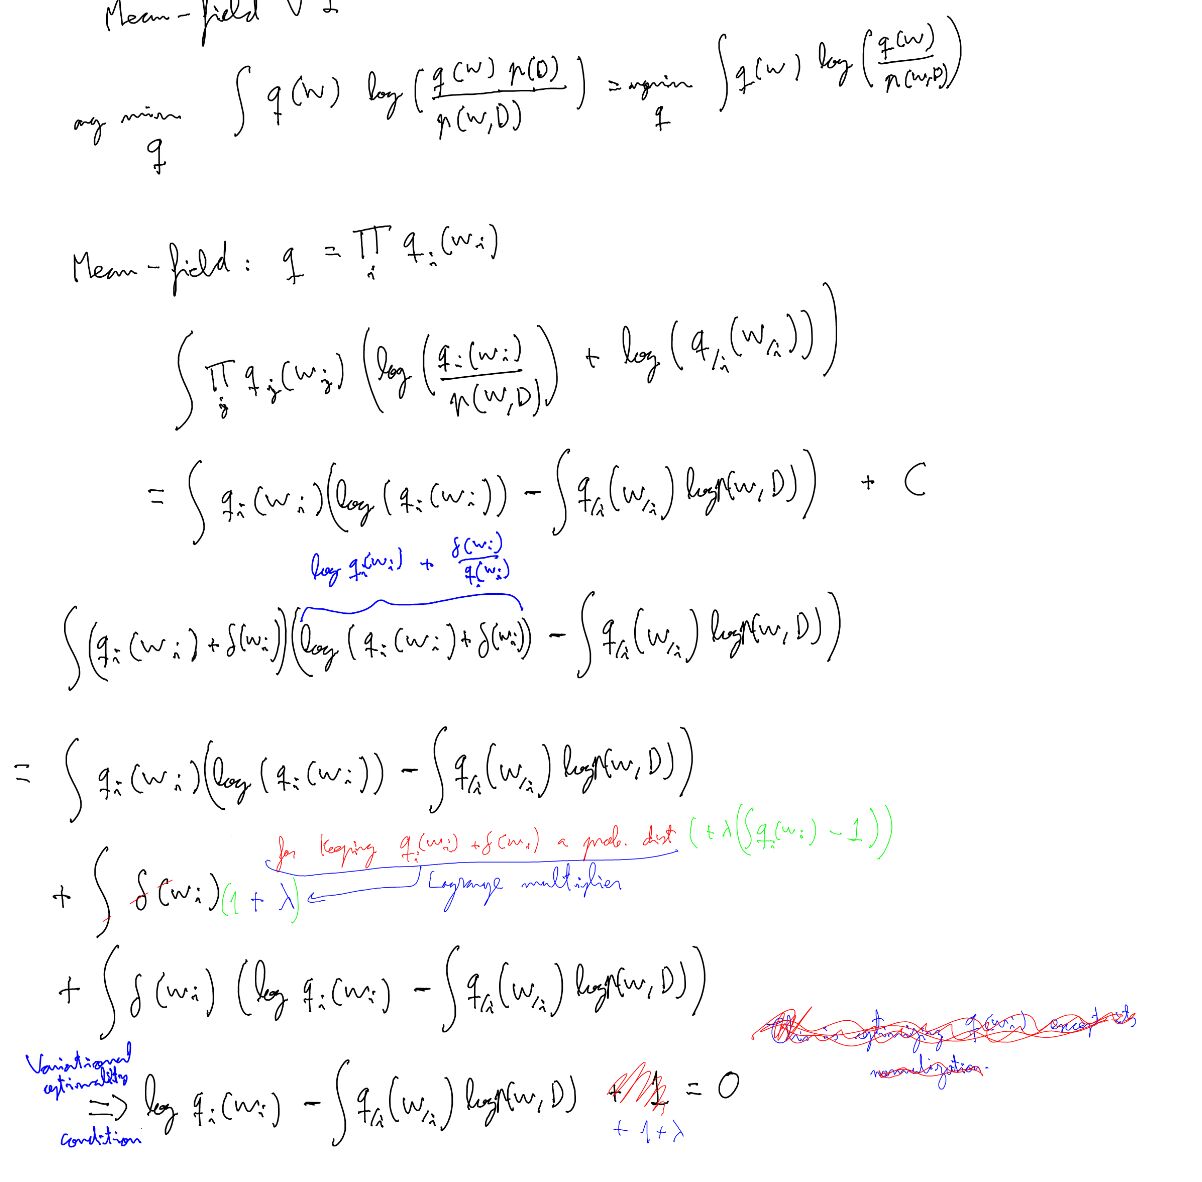 Mean-field VI
arg min_q ∫ q(w) log( q(w) p(D) / p(w,D) ) = argmin_q ∫ q(w) log( q(w) / p(w,D) )
Mean-field: q = ∏_i q_i(w_i)
∫ ∏_j q_j(w_j) ( log( q_i(w_i) / p(w,D) ) + log( q_/i(w_/i) ) )
= ∫ q_i(w_i) ( log( q_i(w_i) ) - ∫ q_/i(w_/i) log p(w,D) ) + C
log q_i(w_i) + δ(w_i) / q_i(w_i)
∫ ( q_i(w_i) + δ(w_i) ) ( log( q_i(w_i) + δ(w_i) ) - ∫ q_/i(w_/i) log p(w,D) )
= ∫ q_i(w_i) ( log( q_i(w_i) ) - ∫ q_/i(w_/i) log p(w,D) )
for keeping q_i(w_i) + δ(w_i) a prob. dist (+ λ( ∫ q_i(w_i) - 1 ))
+ ∫ δ(w_i) (1 + λ) Lagrange multiplier
+ ∫ δ(w_i) ( log q_i(w_i) - ∫ q_/i(w_/i) log p(w,D) )
normalization.
Variational
optimality
⇒ log q_i(w_i) - ∫ q_/i(w_/i) log p(w,D) + 1 = 0
condition
+ 1 + λ